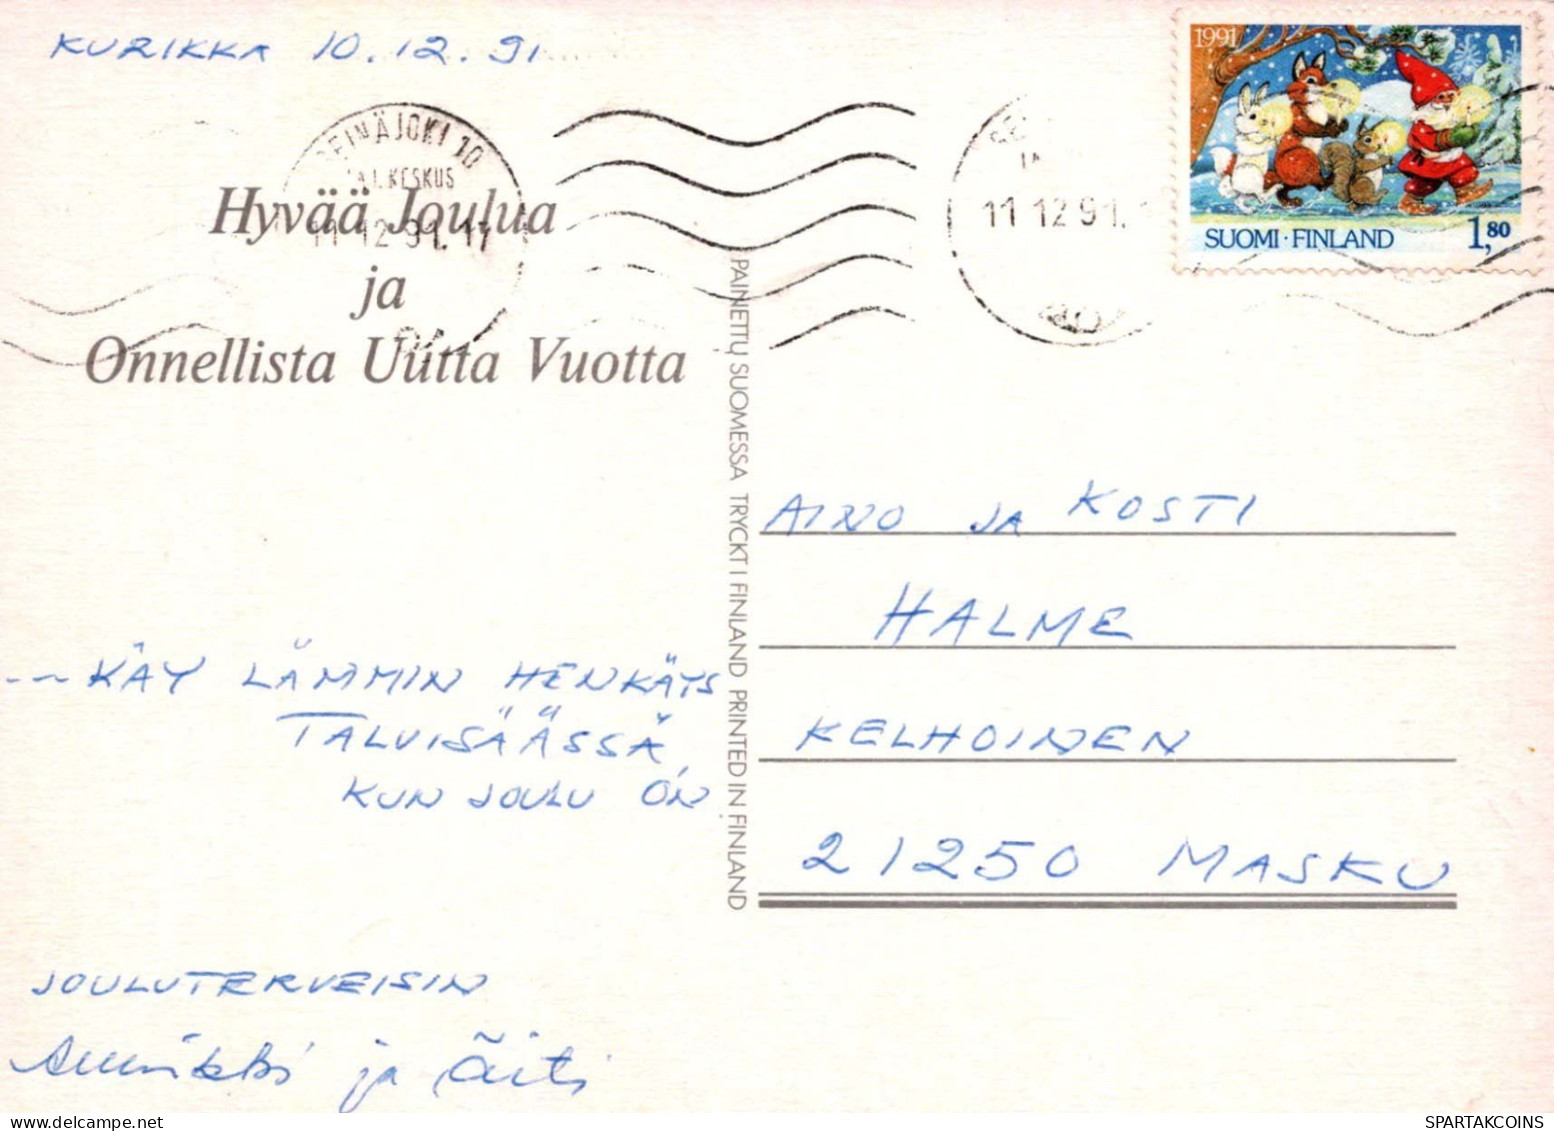 KURIKKA 10.12.91
1991
SUOMI · FINLAND 1,80
SEINÄJOKI 10
KESKUS
11 12 91. 17
11 12 91.
Hyvää Joulua
ja
Onnellista Uutta Vuotta
PAINETTU SUOMESSA TRYCKT I FINLAND PRINTED IN FINLAND
AINO JA KOSTI
HALME
KELHOINEN
21250 MASKU
--- KÄY LÄMMIN HENKÄYS
TALVISÄÄSSÄ,
KUN JOULU ON
JOULUTERVEISIN
Annikki ja Äiti
SPARTAKCOINS